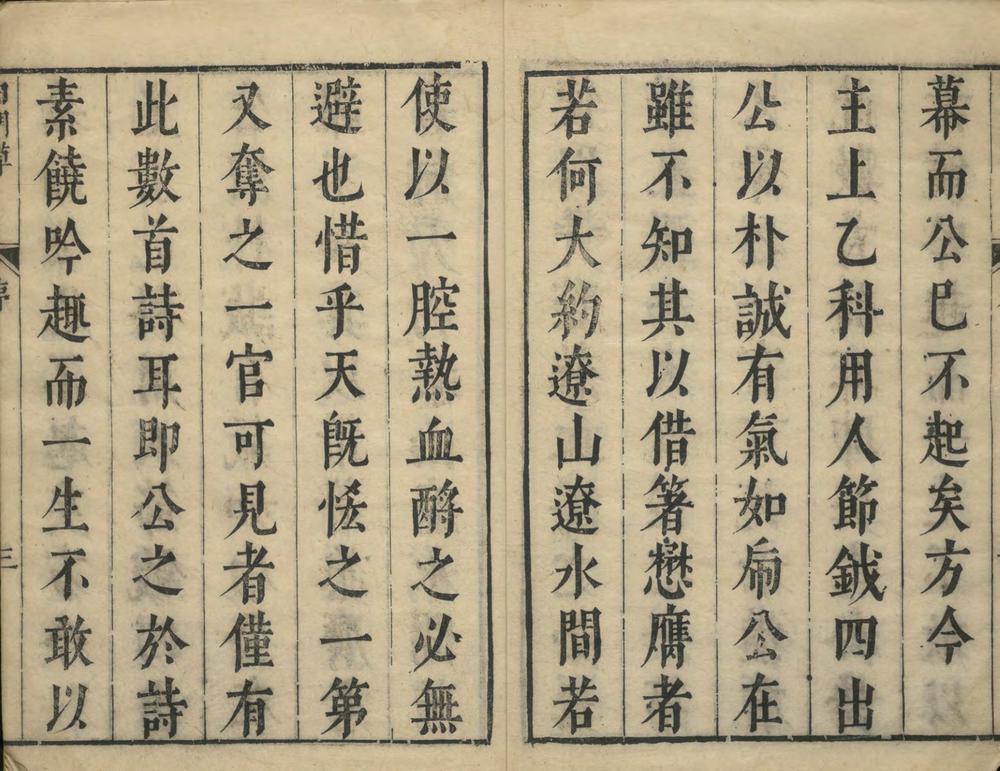 幕而公已不起矣方今
主上乙科用人節鉞四出
公以朴誠有氣如扄公在
雖不知其以借箸懋膺者
若何大約遼山遼水間若
使以一腔熱血酹之必無
避也惜乎天旣恡之一第
又奪之一官可見者僅有
此數首詩耳即公之於詩
素饒吟趣而一生不敢以
草
序
三